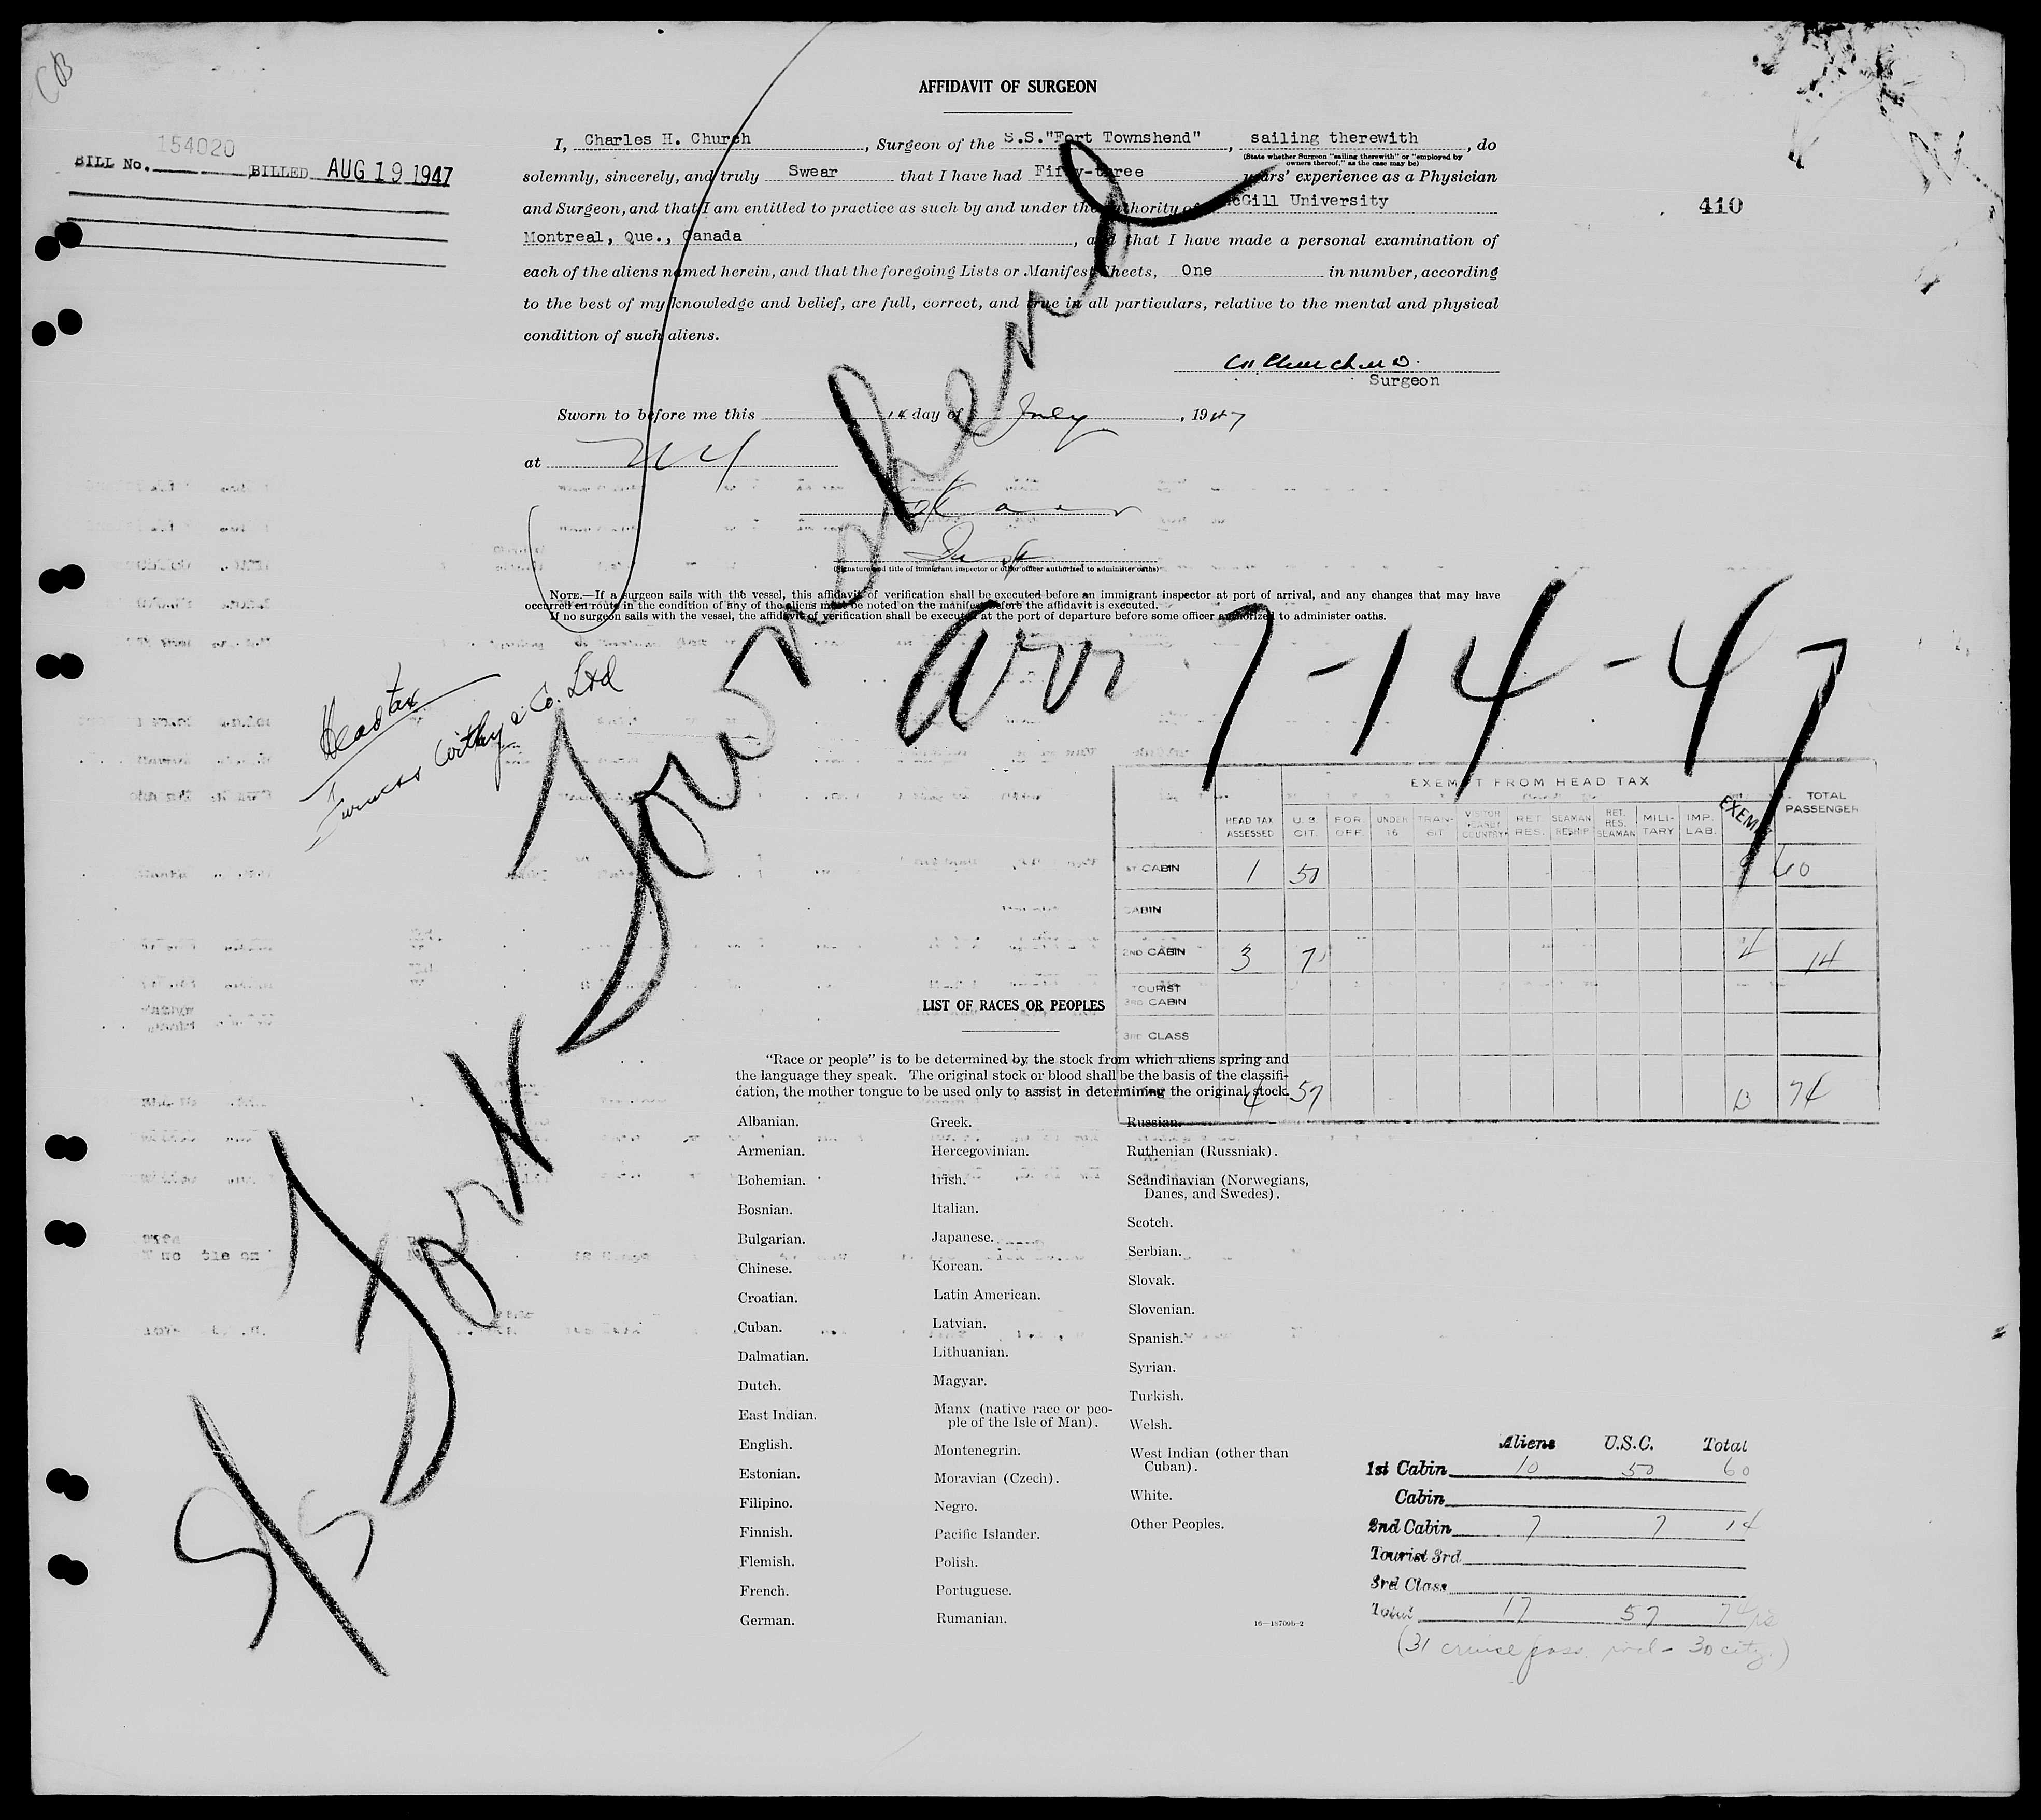 CB
AFFIDAVIT OF SURGEON
154020
BILL No. BILLED AUG 19 1947
410
I, Charles H. Church, Surgeon of the S.S."Fort Townshend", sailing therewith, do
(State whether Surgeon "sailing therewith" or "employed by
owners thereof," as the case may be)
solemnly, sincerely, and truly Swear that I have had Fifty-three years' experience as a Physician
and Surgeon, and that I am entitled to practice as such by and under the authority of McGill University
Montreal, Que., Canada, and that I have made a personal examination of
each of the aliens named herein, and that the foregoing Lists or Manifest Sheets, One in number, according
to the best of my knowledge and belief, are full, correct, and true in all particulars, relative to the mental and physical
condition of such aliens.
CH Church M.D.
Surgeon
Sworn to before me this 14 day of July, 1947
at NY
(Signature and title of immigrant inspector or other officer authorized to administer oaths)
NOTE.—If a surgeon sails with the vessel, this affidavit of verification shall be executed before an immigrant inspector at port of arrival, and any changes that may have
occurred en route in the condition of any of the aliens must be noted on the manifest before the affidavit is executed.
If no surgeon sails with the vessel, the affidavit of verification shall be executed at the port of departure before some officer authorized to administer oaths.
S/S Fort Townshend
arr 7-14-47
Head tax
Furness Withy & Co. Ltd
EXEMPT FROM HEAD TAX
HEAD TAX ASSESSED U.S. CIT. FOR OFF. UNDER 16 TRANSIT VISITOR COUNTRY RET RES. SEAMAN RESHIP RET. RES. SEAMAN MILITARY IMP. LAB. EXEMPT TOTAL PASSENGER
1ST CABIN 1 50 9 60
CABIN
2ND CABIN 3 7 4 14
TOURIST
3RD CABIN
3RD CLASS
4 57 13 74
LIST OF RACES OR PEOPLES
"Race or people" is to be determined by the stock from which aliens spring and
the language they speak. The original stock or blood shall be the basis of the classifi-
cation, the mother tongue to be used only to assist in determining the original stock.
Albanian.
Armenian.
Bohemian.
Bosnian.
Bulgarian.
Chinese.
Croatian.
Cuban.
Dalmatian.
Dutch.
East Indian.
English.
Estonian.
Filipino.
Finnish.
Flemish.
French.
German.
Greek.
Hercegovinian.
Irish.
Italian.
Japanese.
Korean.
Latin American.
Latvian.
Lithuanian.
Magyar.
Manx (native race or peo-
ple of the Isle of Man).
Montenegrin.
Moravian (Czech).
Negro.
Pacific Islander.
Polish.
Portuguese.
Rumanian.
Russian.
Ruthenian (Russniak).
Scandinavian (Norwegians,
Danes, and Swedes).
Scotch.
Serbian.
Slovak.
Slovenian.
Spanish.
Syrian.
Turkish.
Welsh.
West Indian (other than
Cuban).
White.
Other Peoples.
16—18709b-2
Aliens U.S.C. Total
1st Cabin 10 50 60
Cabin
2nd Cabin 7 7 14
Tourist 3rd
3rd Class
Total 17 57 74
(31 cruise pass. incl- 30 citz.)